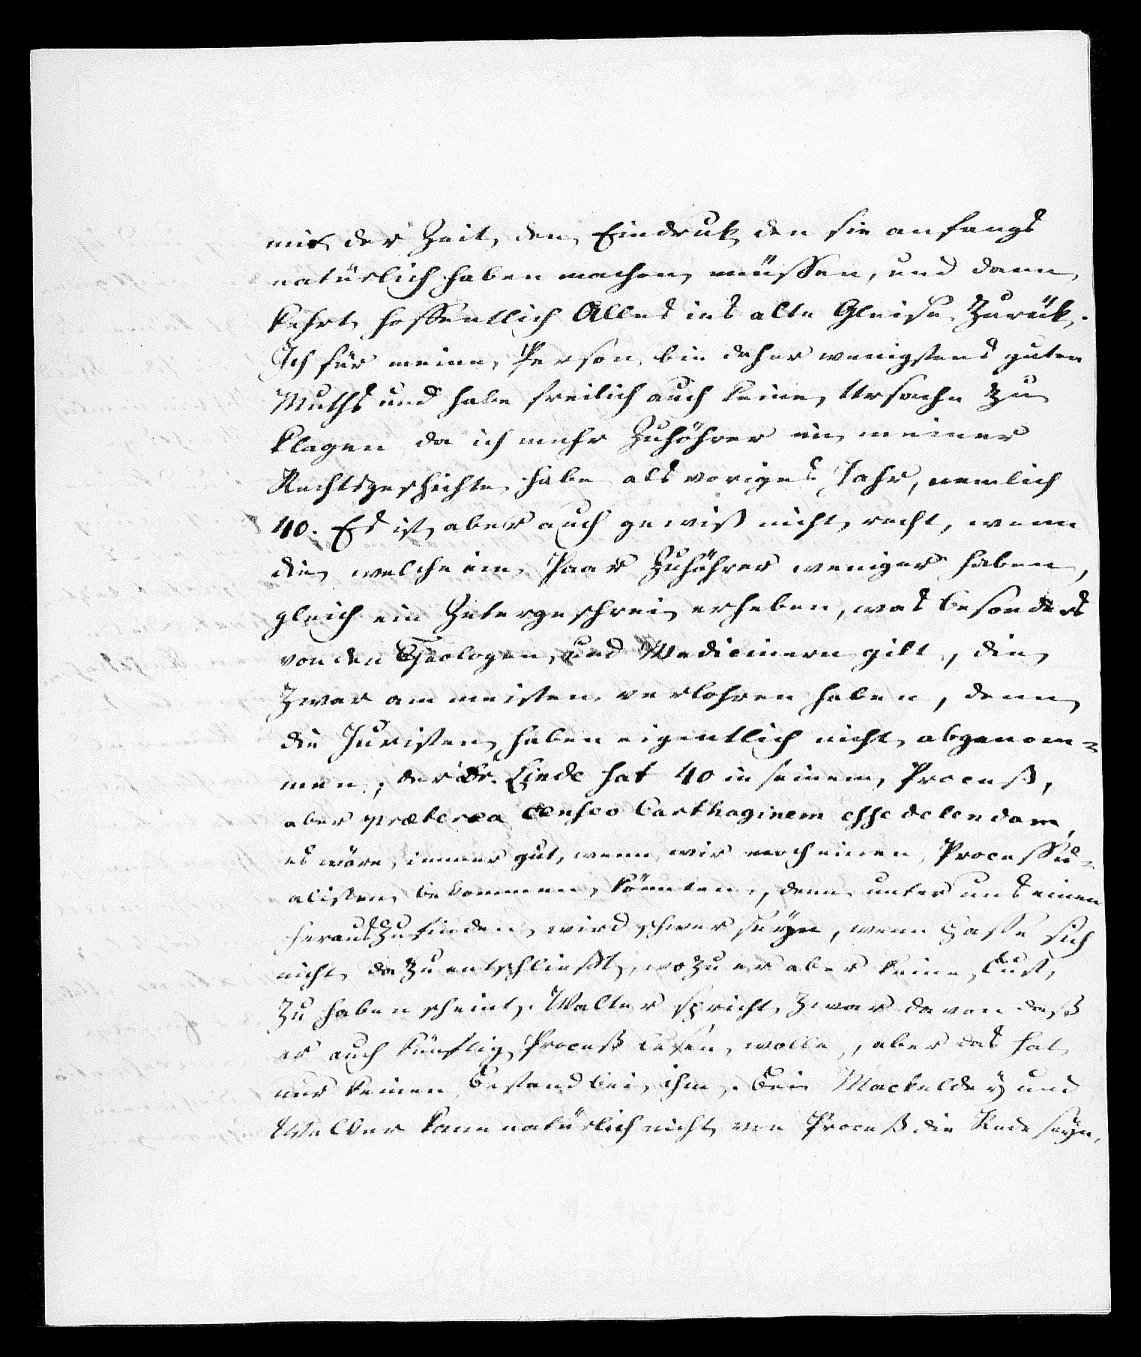 mit der Zeit, den Eindruk den sie anfangs
natürlich haben machen müssen, und dann
kehrt hoffentlich Alles ins alte Gleise zurük.
Ich für meine Person bin daher wenigstens guten
Muths und habe freilich auch keine Ursache zu
klagen da ich mehr Zuhöhrer in meiner
Rechtsgeschichte habe als voriges Jahr, nemlich
40. Es ist aber auch gewiß nicht recht, wenn
die welche ein Paar Zuhöhrer weniger haben,
gleich ein Zetergeschrei erheben, was besonders
von den Theologen und Medicinern gilt, die
zwar am meisten verlohren haben, denn
die Juristen haben eigentlich nicht abgenom=
men, der Dr. Linde hat 40 in seinem Proceß,
aber præterea censeo Carthaginem esse delendam,
es wäre immer gut, wenn wir noch einen Processu=
alisten bekommen könnten, denn unter uns einen
herauszufinden wird schwer seyn, wenn Hasse sich
nicht dazu entschließt, wozu er aber keine Lust
zu haben scheint. Walter spricht zwar davon daß
er auch künftig Proceß lesen wolle, aber das hat
nur keinen Bestand bei ihm. Bei Mackeldey und
Welker kann natürlich nicht von Proceß die Rede seyn,